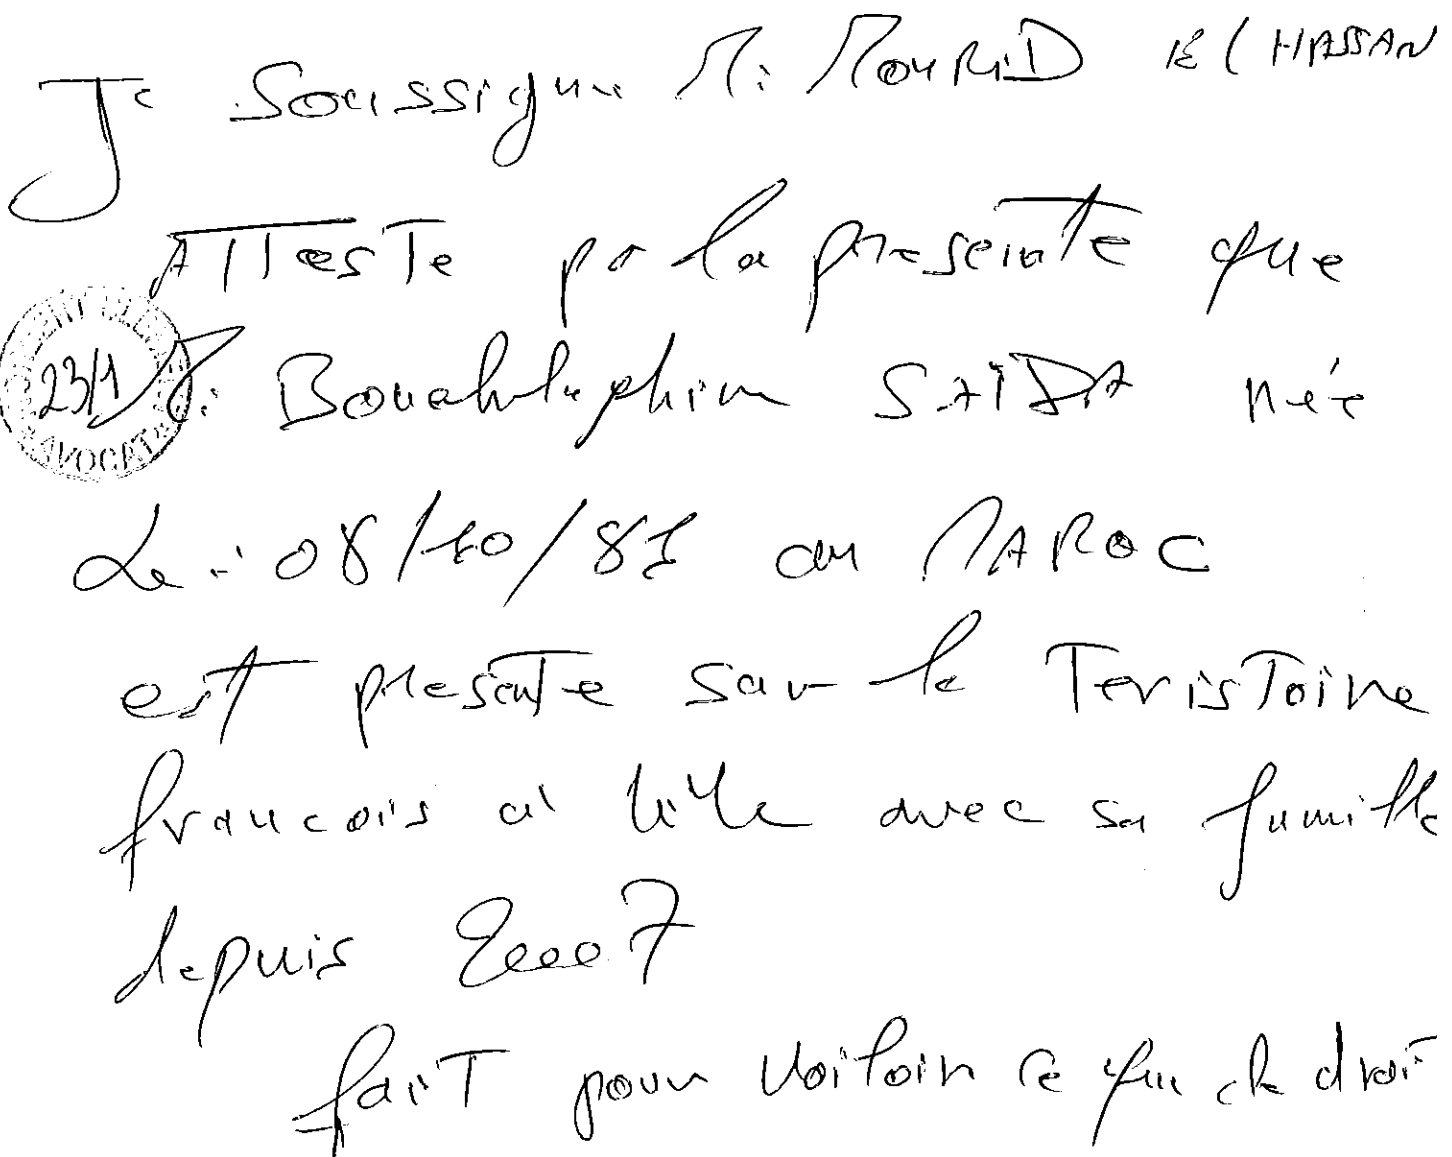 Je Soussigne M: MOURID El HASSAN
ATTesTe pa la presente que
23/1
AVOCAT
SAIDA née
Le: 08/10/81 au MAROC
est presente sur le TerisToire
francais a lille avec sa famille
depuis 2007
faiT pour valoir ce que de droiT